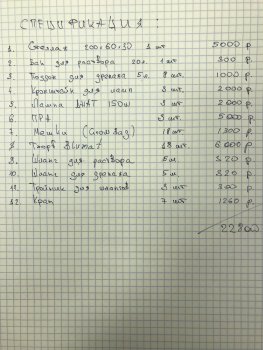 СПЕЦИФИКАЦИЯ:
1. Стеллаж 200х60х30 1 шт 5000 р.
2. Бак для раствора 20л. 1 шт 300 р.
3. Поддон для дренажа 5л. 9 шт 1000 р.
4. Кронштейн для ламп 3 шт 2000 р.
5. Лампа ДНАТ 150W 3 шт. 2000 р.
6. ПРА 3 шт. 5000 р.
7. Мешки (Growbag) 18 шт 1300 р.
8. Blumat 18 шт 6000 р.
9. Шланг для раствора 5м. 320 р.
10. Шланг для дренажа 5м. 320 р.
11. Тройник для шлангов 3 шт 300 р.
12. Кран 7 шт 1260 р.